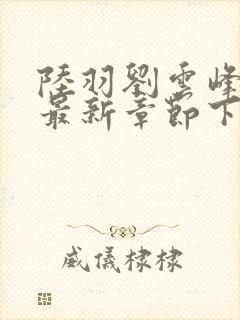 陸羽劉雲峰
最新章節下
威儀棣棣